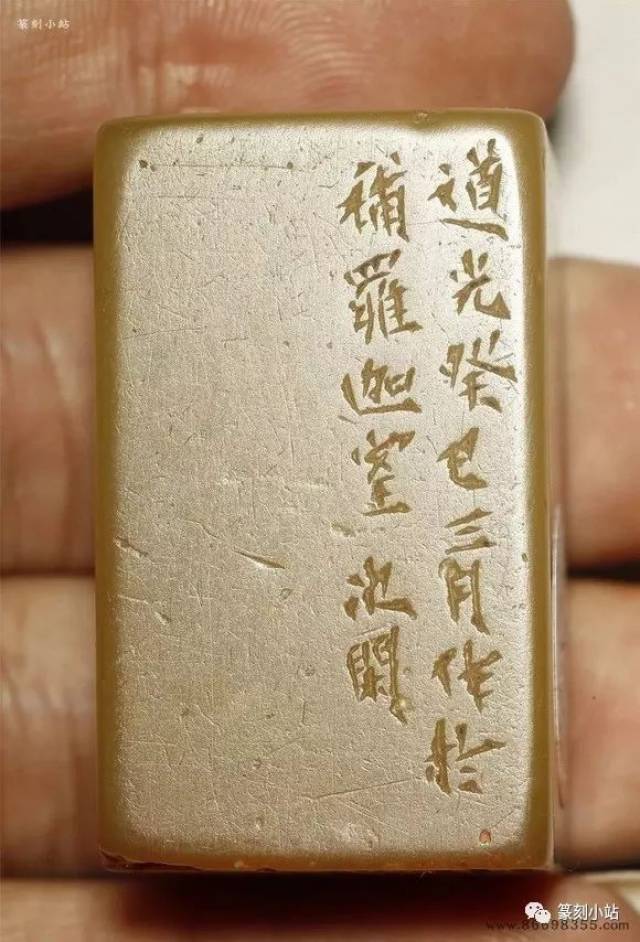 篆刻小站
道光癸巳三月作於
補羅迦室次閑
篆刻小站
www.86698355.com